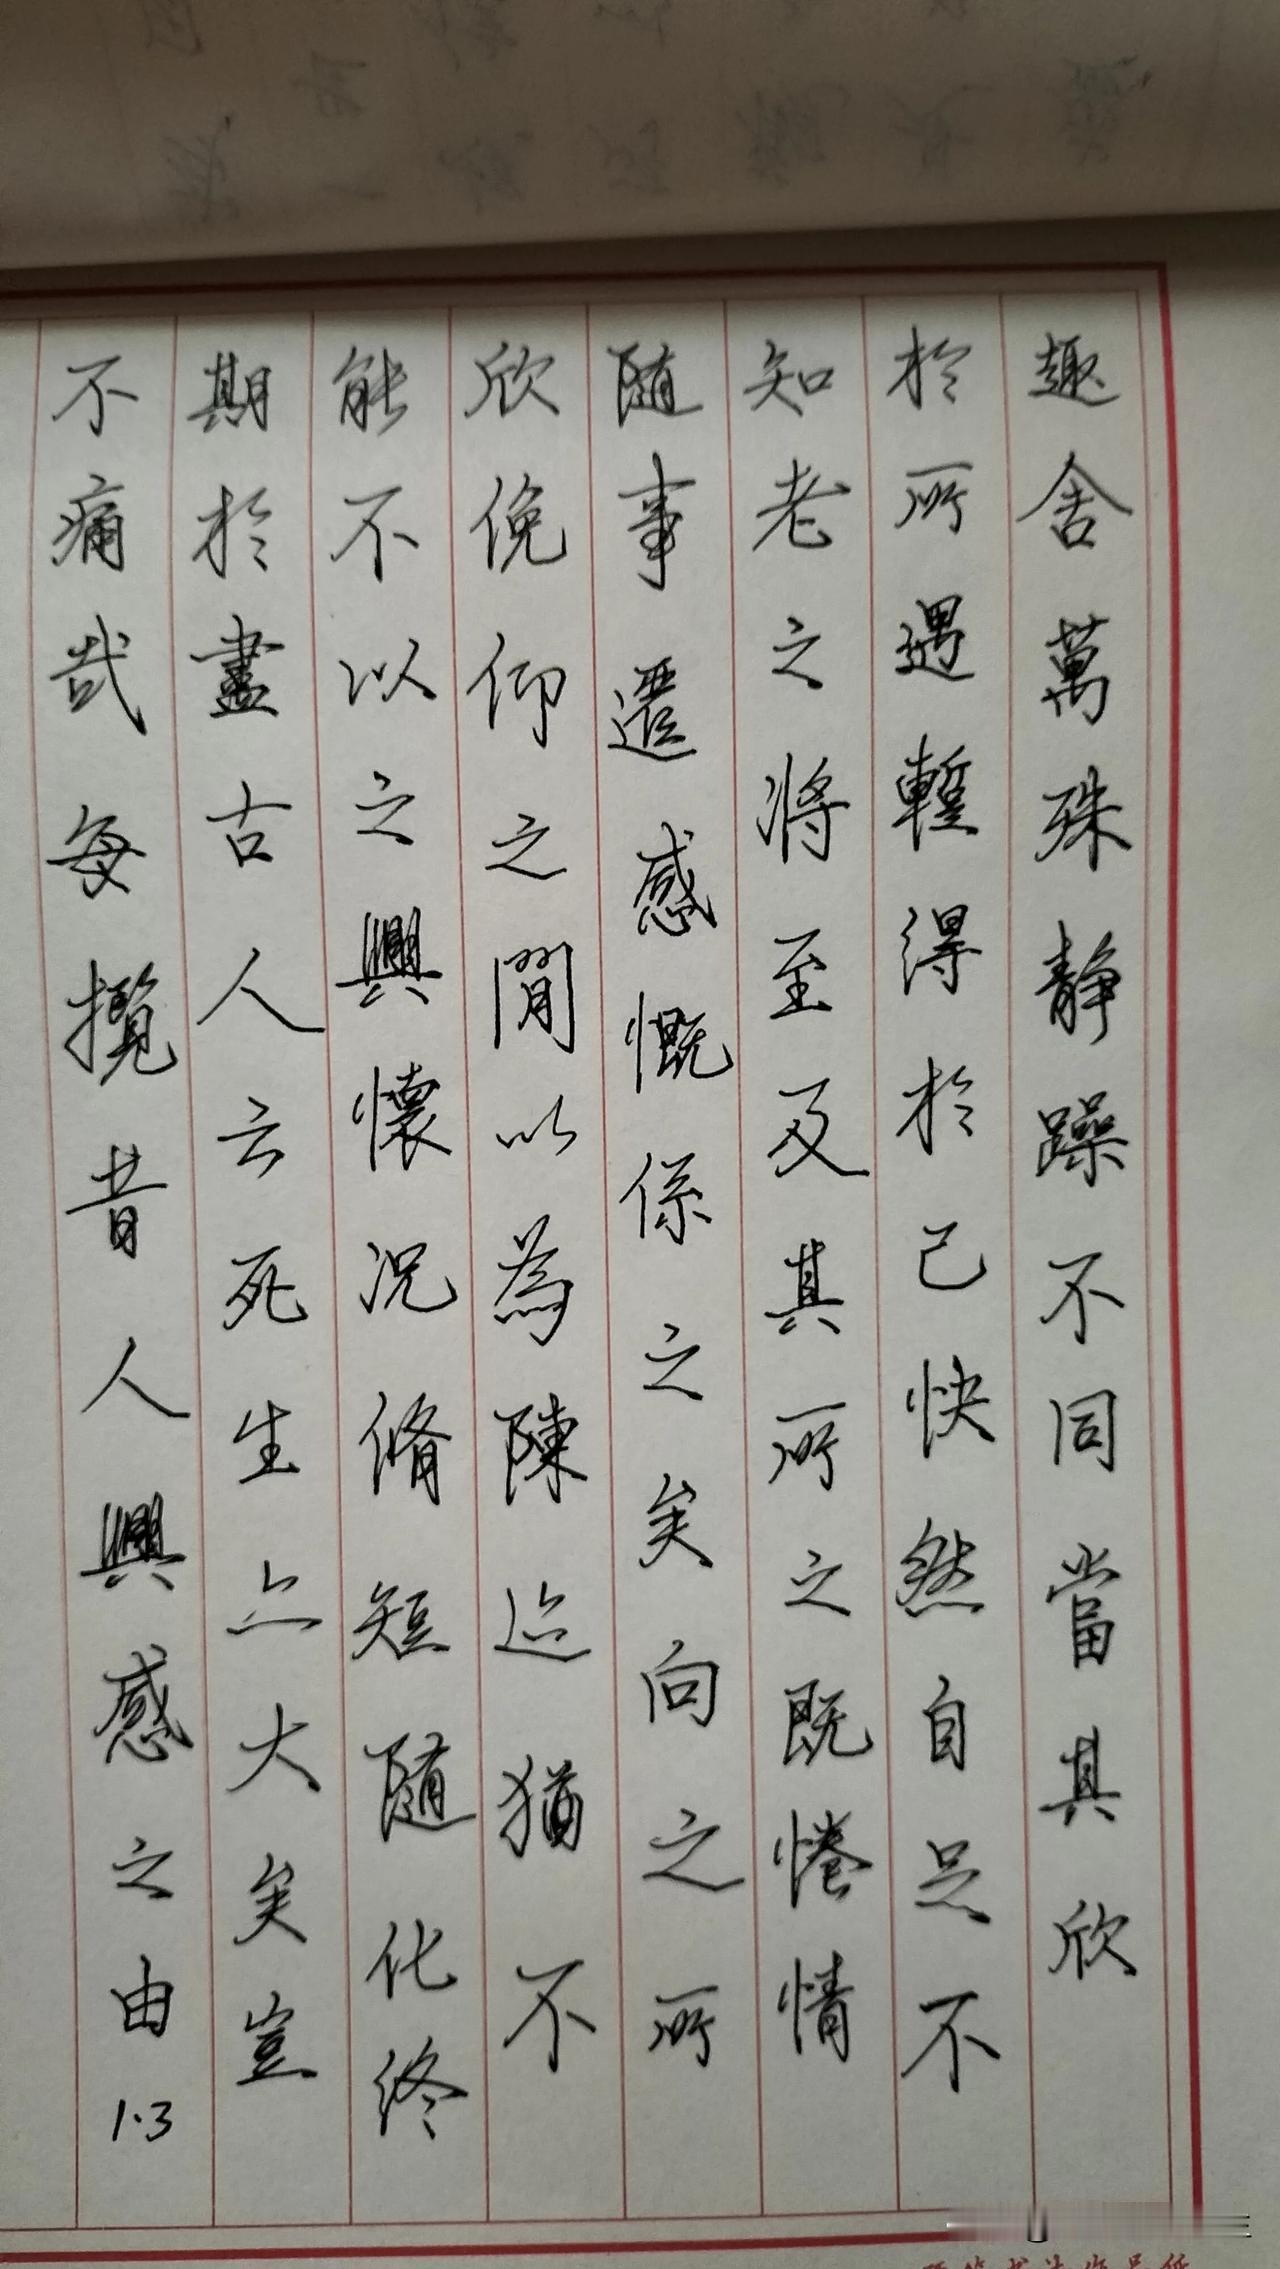 趣舍萬殊静躁不同當其欣
於所遇蹔得於己快然自足不
知老之將至及其所之既惓情
随事遷感慨係之矣向之所
欣俛仰之閒以為陳迹猶不
能不以之興懷況脩短随化終
期於盡古人云死生亦大矣豈
不痛哉每攬昔人興感之由
1.3